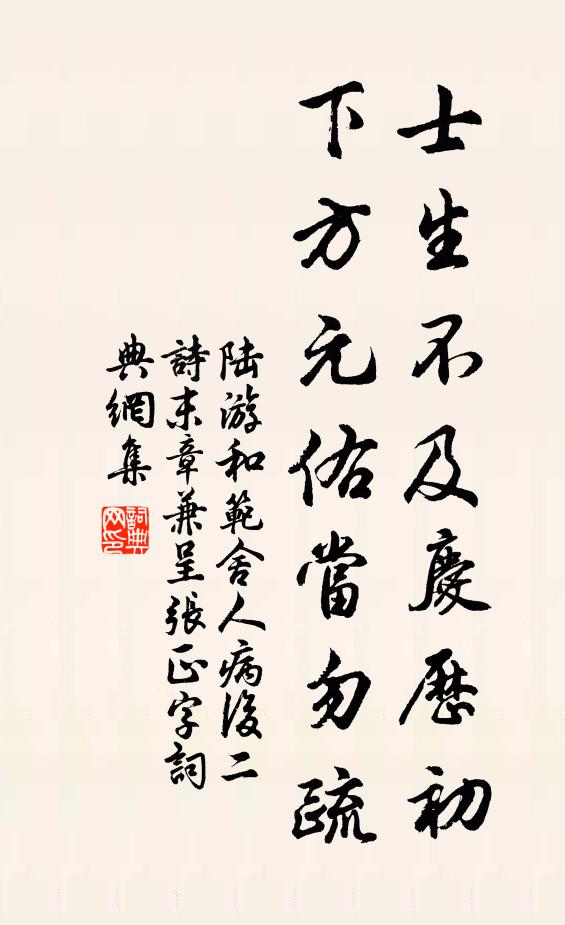 士生不及慶歷初
下方元佑當勿疏
陸游和範舍人病後二
詩末章兼呈張正字詞
典網集
詞典
网印